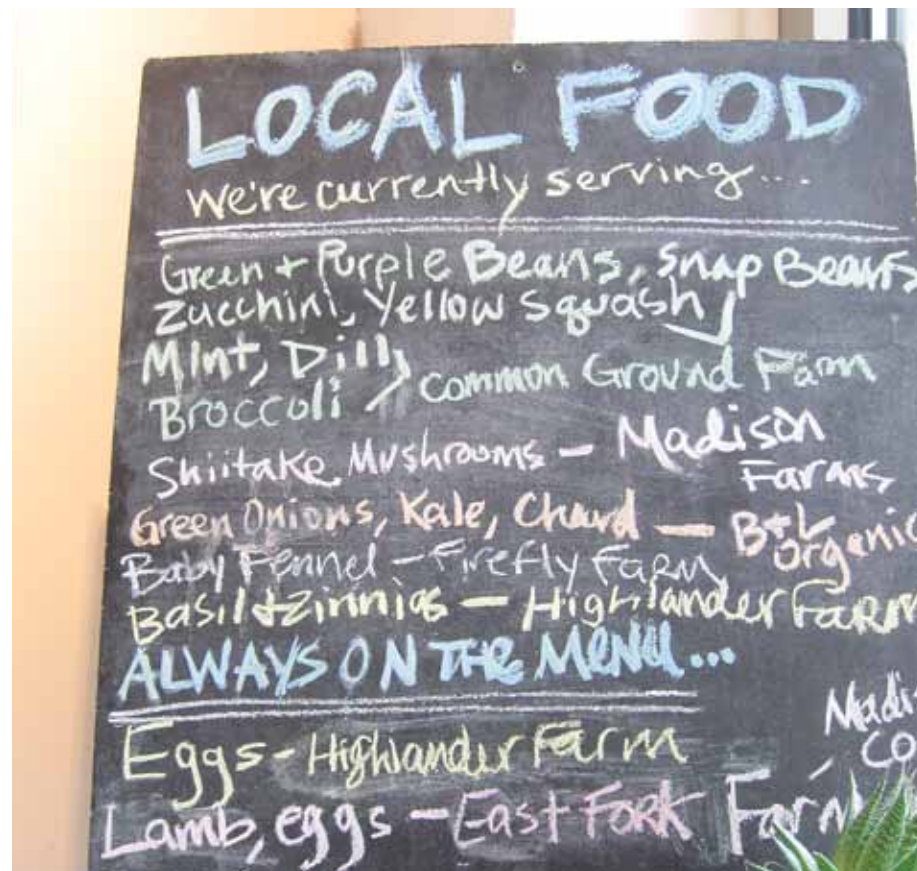 LOCAL FOOD
We're currently serving....
Green + Purple Beans, Snap Beans
Zucchini, Yellow Squash
Mint, Dill,
Broccoli > Common Ground Farm
Shiitake Mushrooms - Madison
Farms
Green Onions, Kale, Chard - B+L
Organic
Baby Fennel - Firefly Farm
Basil + Zinnias - Highlander Farm
ALWAYS ON THE MENU...
Eggs - Highlander Farm
Lamb, eggs - East Fork Farm